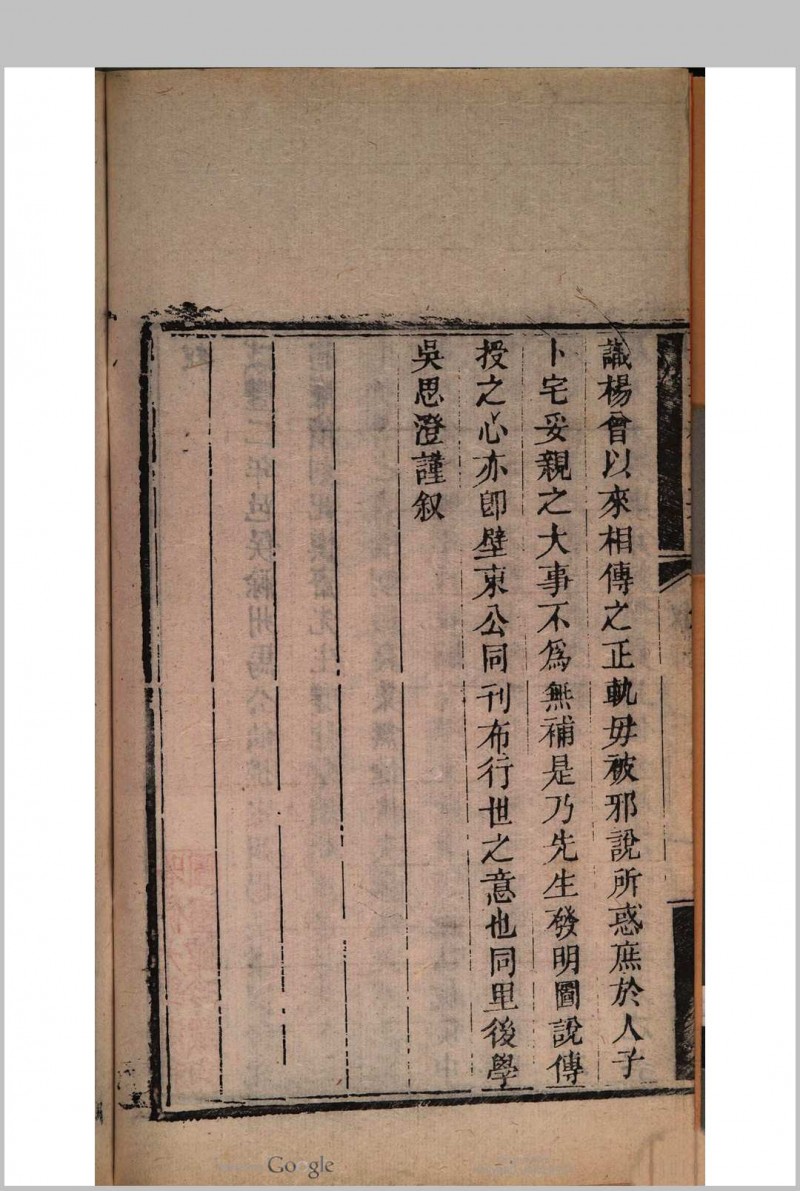 識楊曾以來相傳之正軌毋被邪說所惑庶於人子
卜宅妥親之大事不為無補是乃先生發明圖說傳
授之心亦卽壁東公同刊布行世之意也同里後學
吳思澄謹叙
Google